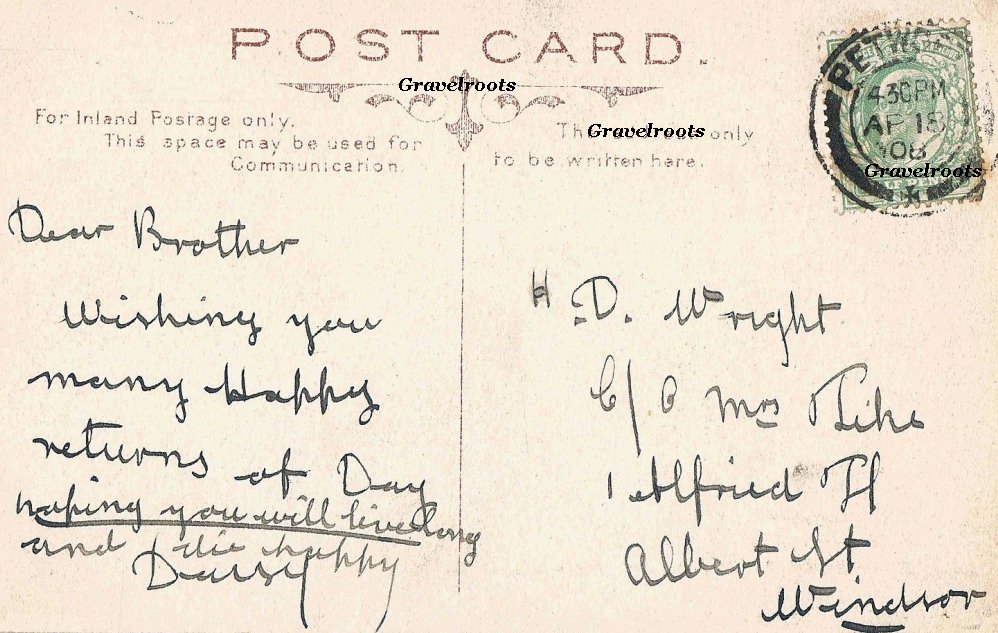 POST CARD.
Gravelroots
For Inland Postage only.
This space may be used for
Communication.
Gravelroots only
to be written here.
PETW
4.30PM
AP 18
08
Gravelroots
Dear Brother
Wishing you
many Happy
returns of Day
hoping you will live long
and die happy
Daisy
H.D. Wright
C/O Mrs Pike
1 Alfried
Albert St
Windsor